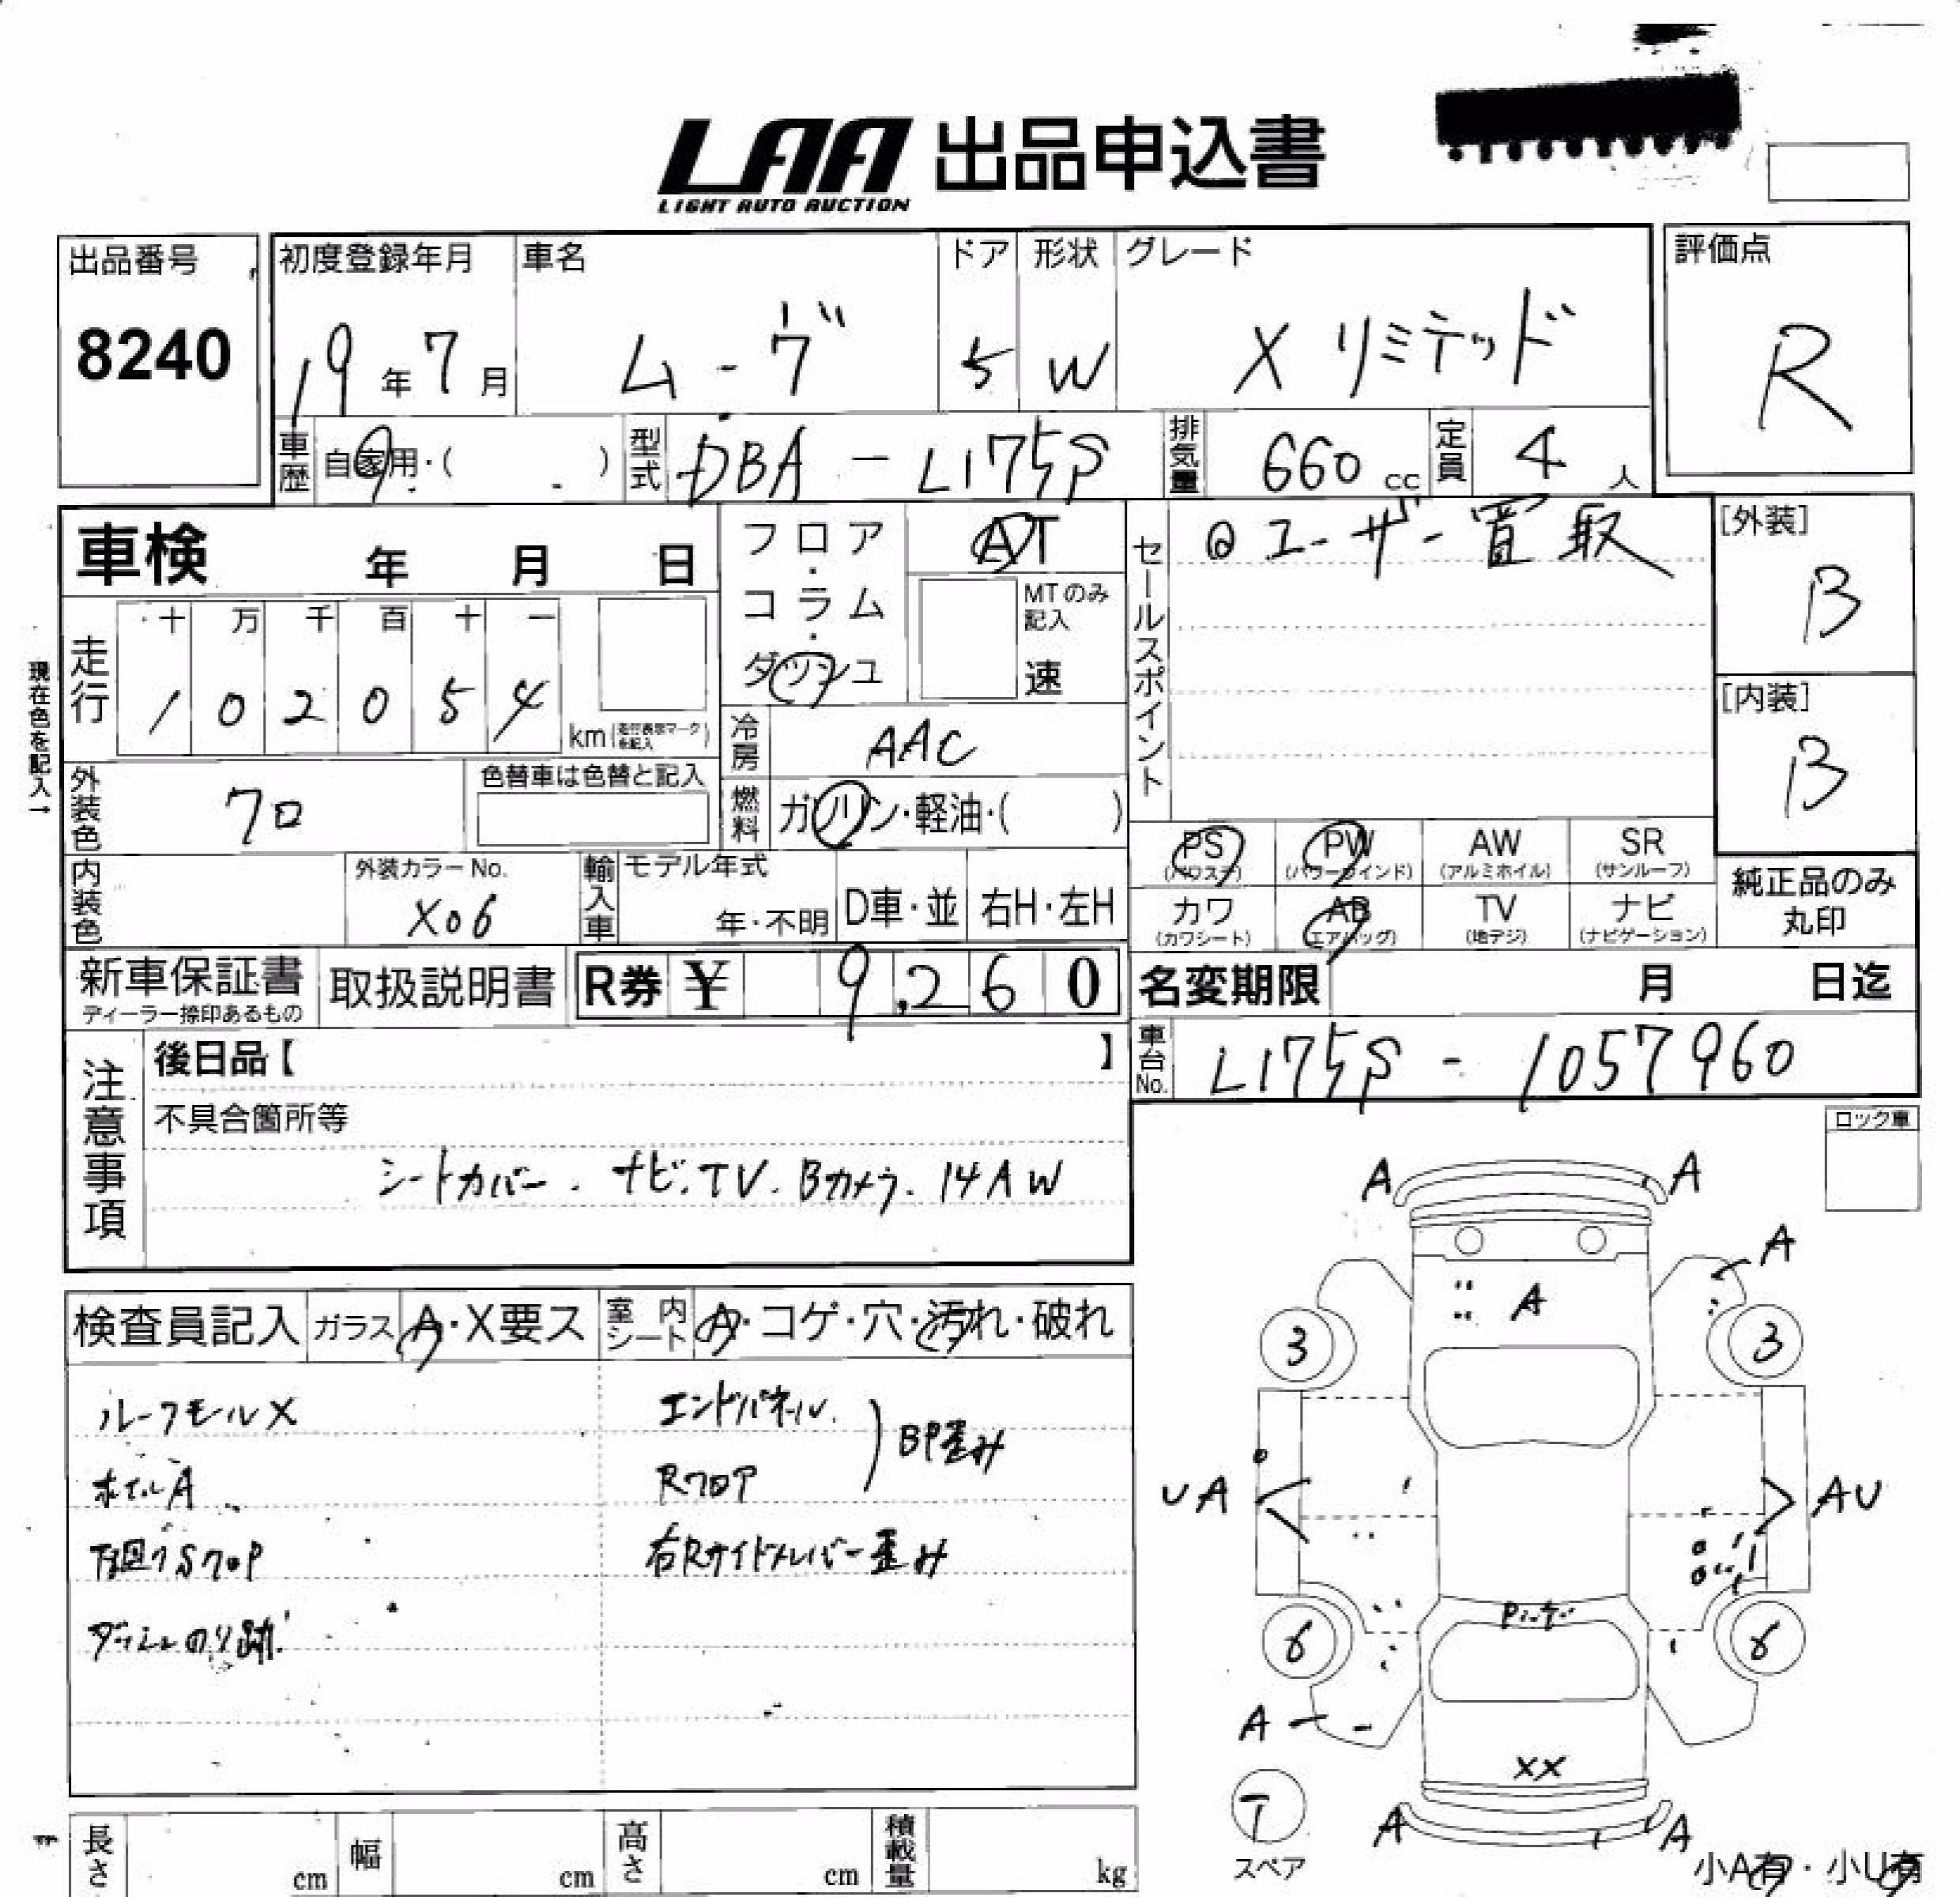 LAA 出品申込書
LIGHT AUTO AUCTION
出品番号
8240
初度登録年月 車名 ドア 形状 グレード
19年7月 ムーヴ 5 W Xリミテッド
評価点
R
車歴 自家用・( ) 型式 DBA-L175S 排気量 660cc 定員 4人
車検 年 月 日
フロア・コラム・ダッシュ
AT
MTのみ記入
速
セールスポイント
@ユーザー買取
[外装]
B
[内装]
B
現在色を記入→
走行 十 万 千 百 十 一
1 0 2 0 5 4
km(走行表示マークを記入)
冷房 AAC
外装色 クロ 色替車は色替と記入
燃料 ガソリン・軽油・( )
PS (パワステ) PW (パワーウインド) AW (アルミホイル) SR (サンルーフ)
カワ (カワシート) AB (エアバッグ) TV (地デジ) ナビ (ナビゲーション)
純正品のみ丸印
内装色 外装カラーNo. X06
輸入車 モデル年式 年・不明 D車・並 右H・左H
新車保証書 ディーラー捺印あるもの
取扱説明書
R券 ¥ 9,260
名変期限 月 日迄
車台No. L175S-1057960
注意事項
後日品【 】
不具合箇所等
シートカバー.ナビ.TV.Bカメラ.14AW
ロック車
検査員記入 ガラス A・X要ス 室内シート A・コゲ・穴・汚れ・破れ
ルーフモールX エンドパネル
BP歪み
ホイルA Rフロア
下回りSクロP 右Rサイドメンバー歪み
ダッシュのり跡
A A
A
A
3 3
UA AU
6 6
A
XX
T
スペア
A A
小A有・小U有
長さ cm 幅 cm 高さ cm 積載量 kg